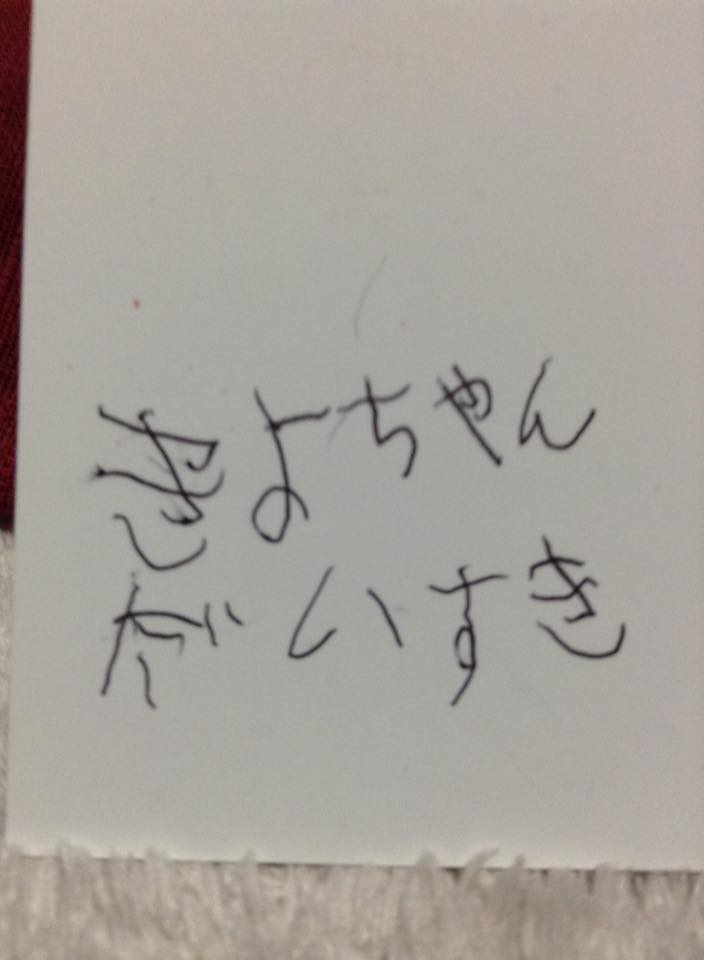 きよちゃん
だいすき